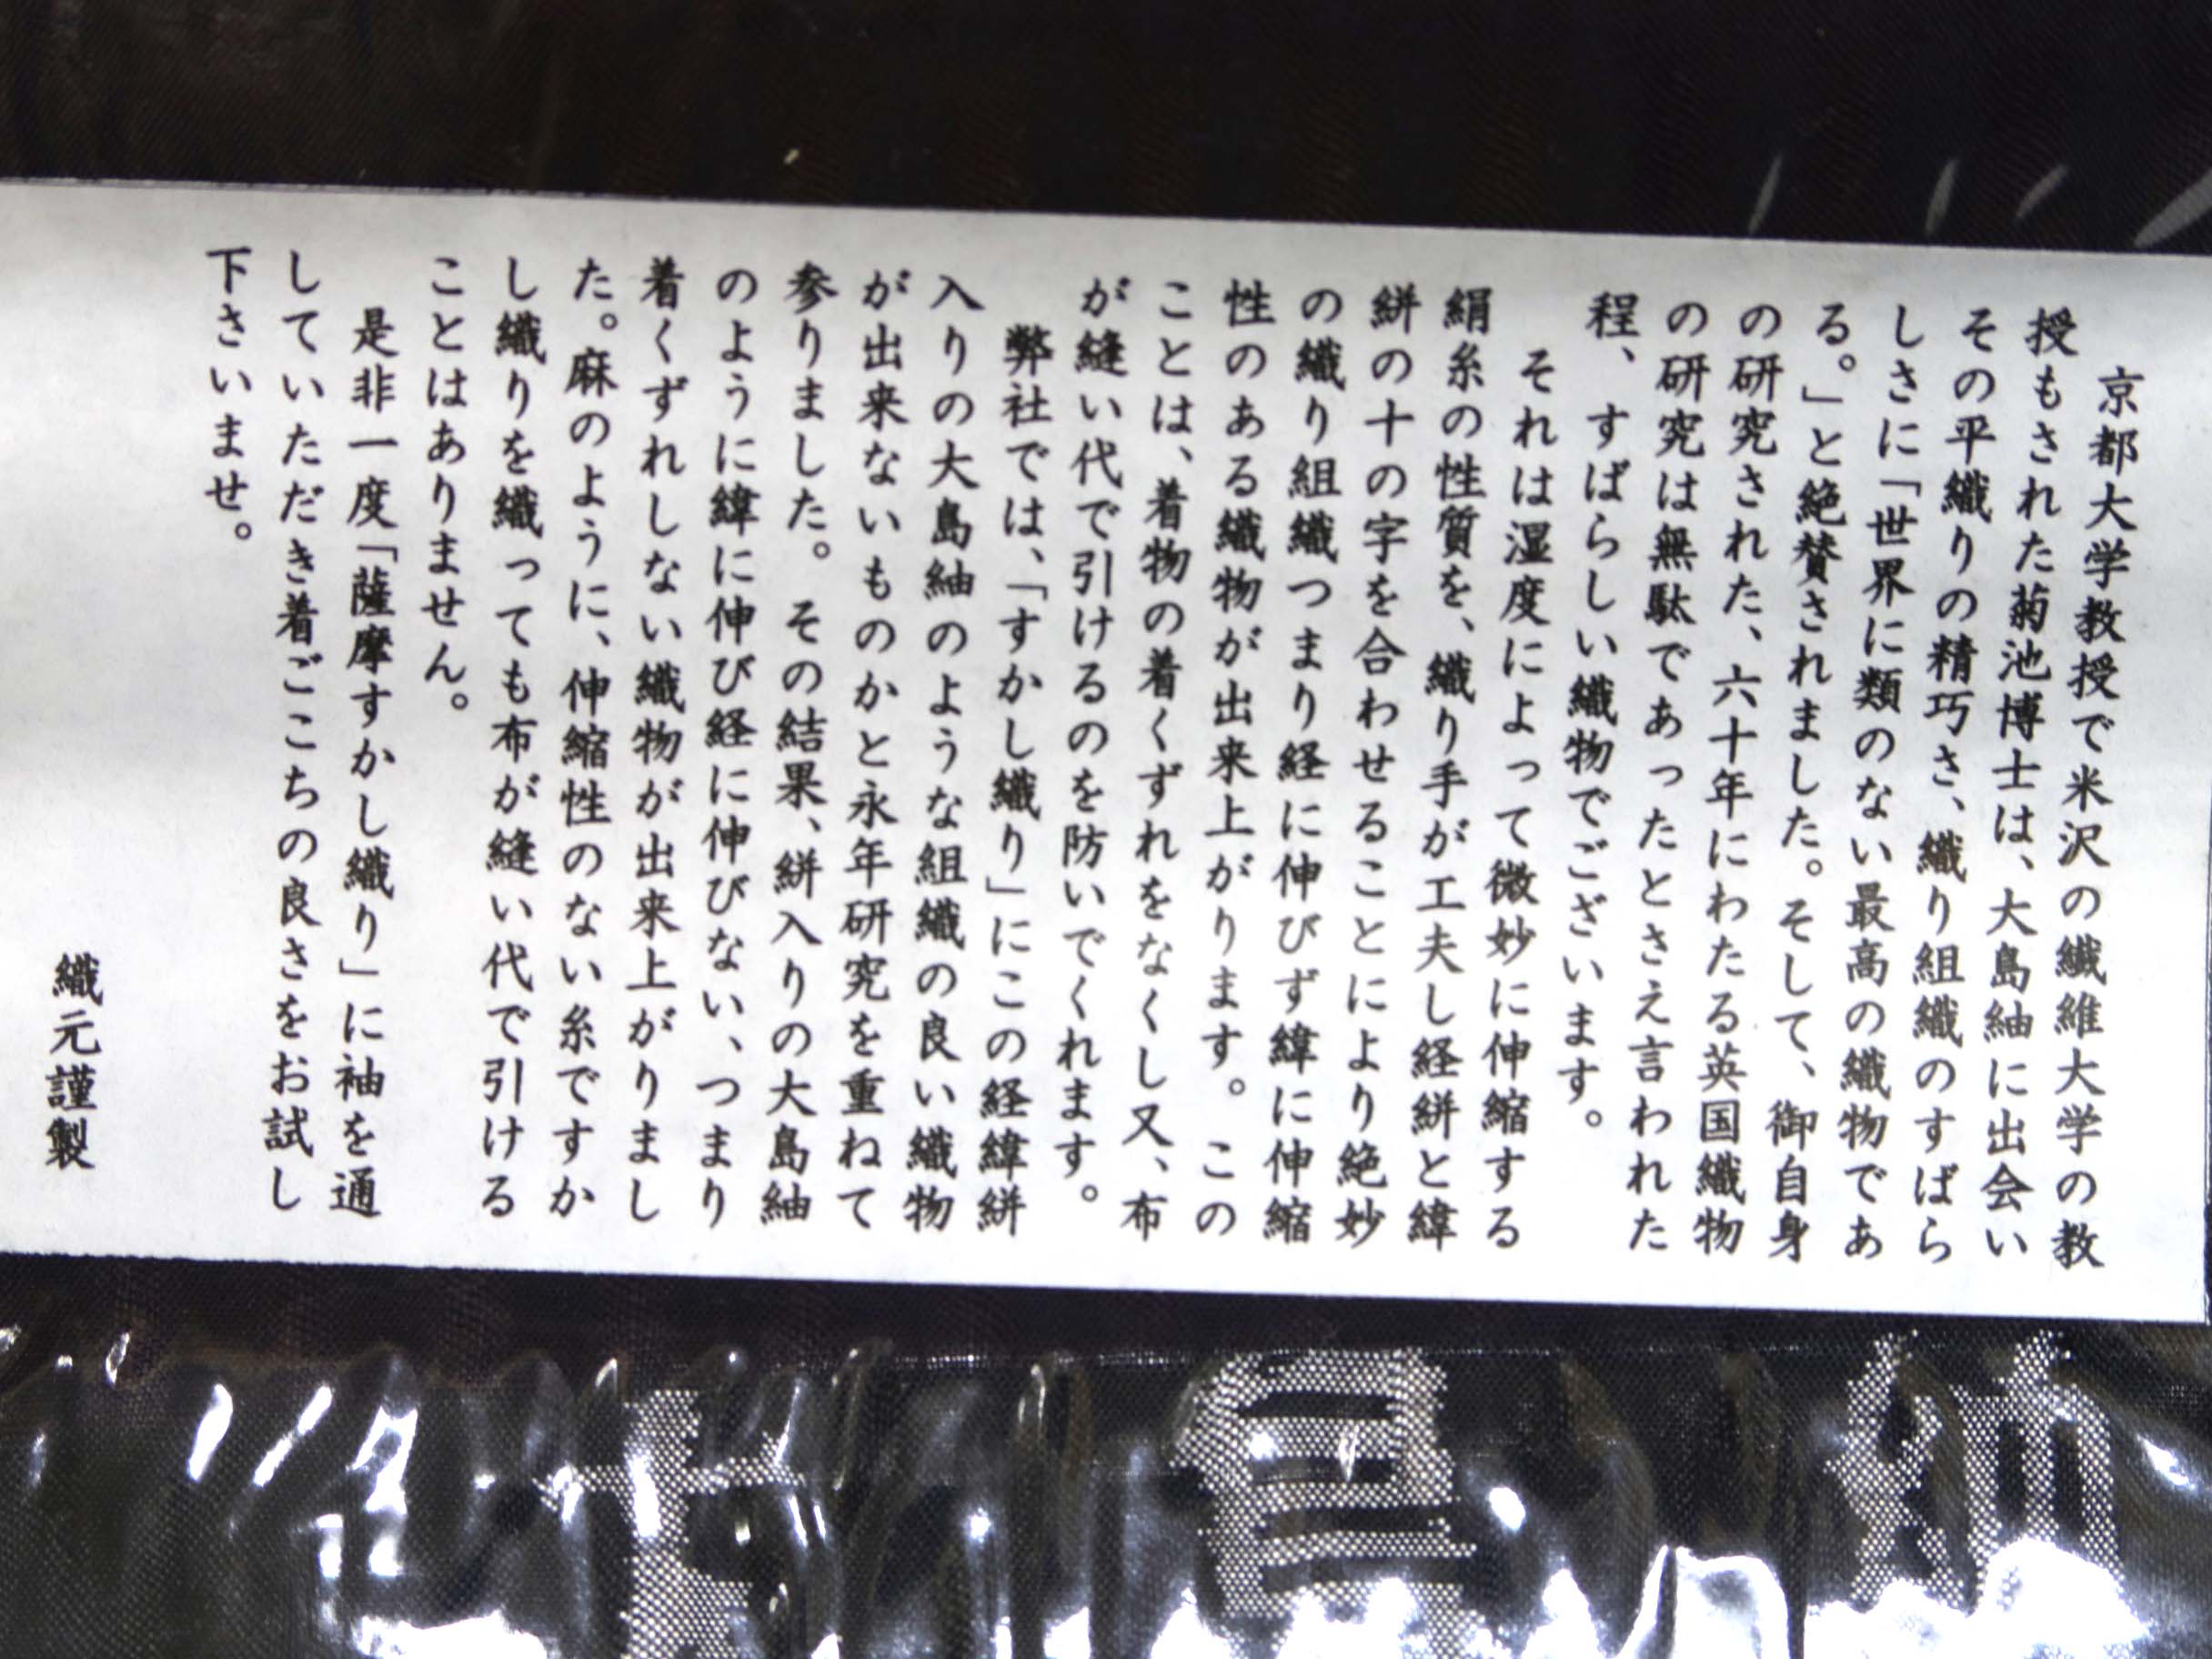 京都大学教授で米沢の繊維大学の教
授もされた菊池博士は、大島紬に出会い
その平織りの精巧さ、織り組織のすばら
しさに「世界に類のない最高の織物であ
る。」と絶賛されました。そして、御自身
の研究された、六十年にわたる英国織物
の研究は無駄であったとさえ言われた
程、すばらしい織物でございます。
それは湿度によって微妙に伸縮する
絹糸の性質を、織り手が工夫し経絣と緯
絣の十の字を合わせることにより絶妙
の織り組織つまり経に伸びず緯に伸縮
性のある織物が出来上がります。この
ことは、着物の着くずれをなくし又、布
が縫い代で引けるのを防いでくれます。
弊社では、「すかし織り」にこの経緯絣
入りの大島紬のような組織の良い織物
が出来ないものかと永年研究を重ねて
参りました。その結果、絣入りの大島紬
のように緯に伸び経に伸びない、つまり
着くずれしない織物が出来上がりまし
た。麻のように、伸縮性のない糸ですか
し織りを織っても布が縫い代で引ける
ことはありません。
是非一度「薩摩すかし織り」に袖を通
していただき着ごこちの良さをお試し
下さいませ。
織元謹製